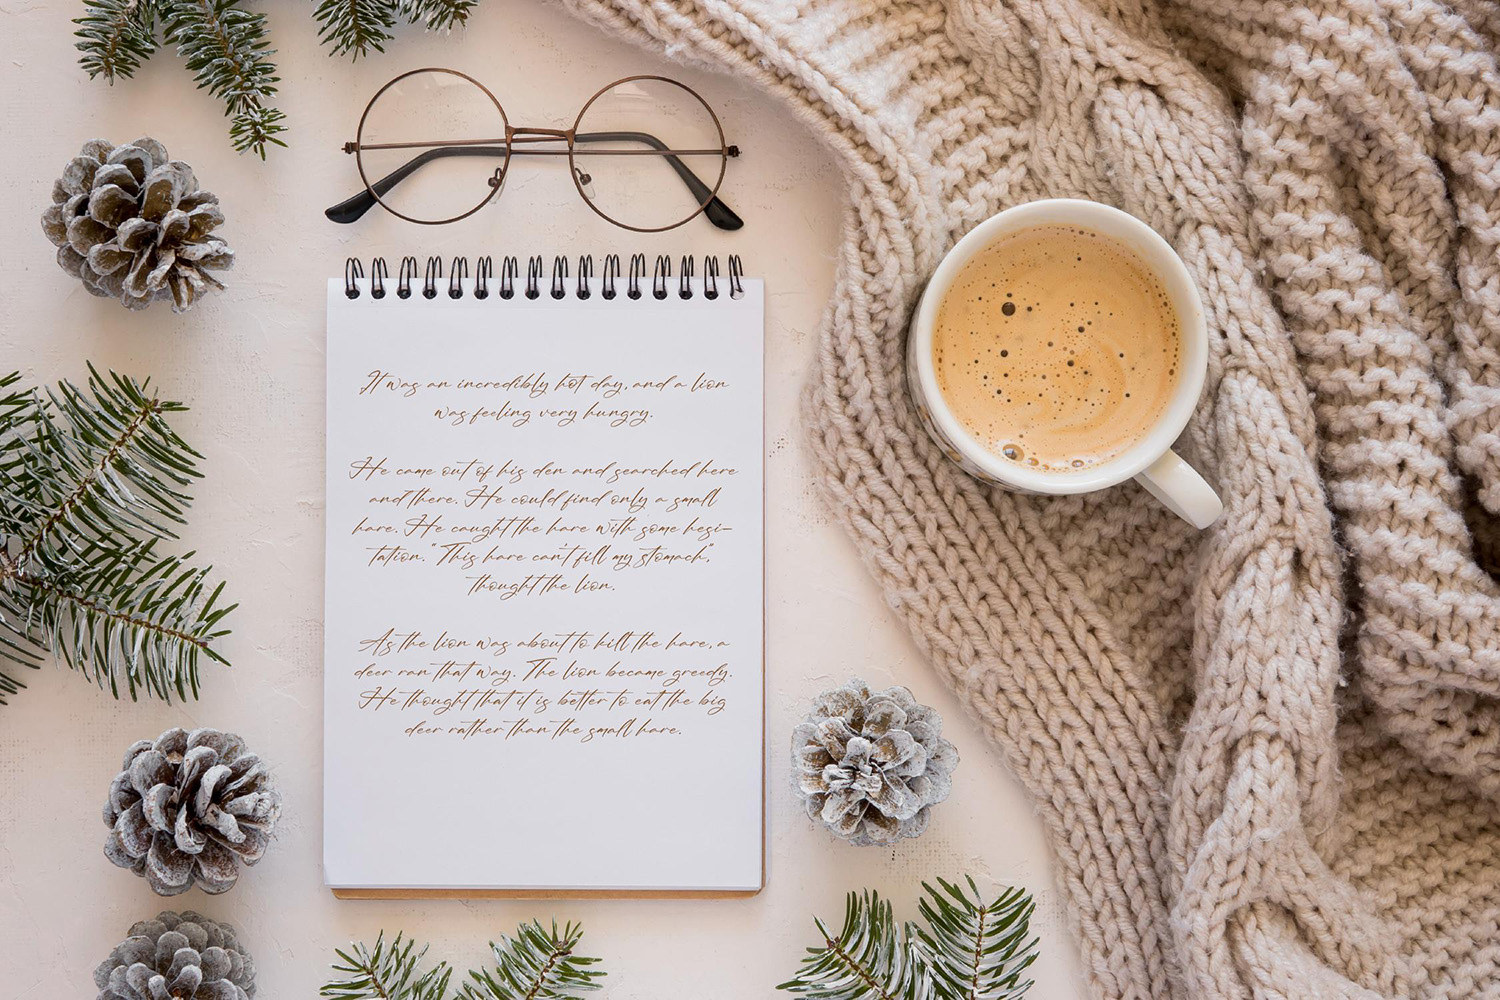 It was an incredibly hot day, and a lion
was feeling very hungry.
He came out of his den and searched here
and there. He could find only a small
hare. He caught the hare with some hesi-
tation. "This hare can't fill my stomach",
thought the lion.
As the lion was about to kill the hare, a
deer ran that way. The lion became greedy.
He thought that it is better to eat the big
deer rather than the small hare.